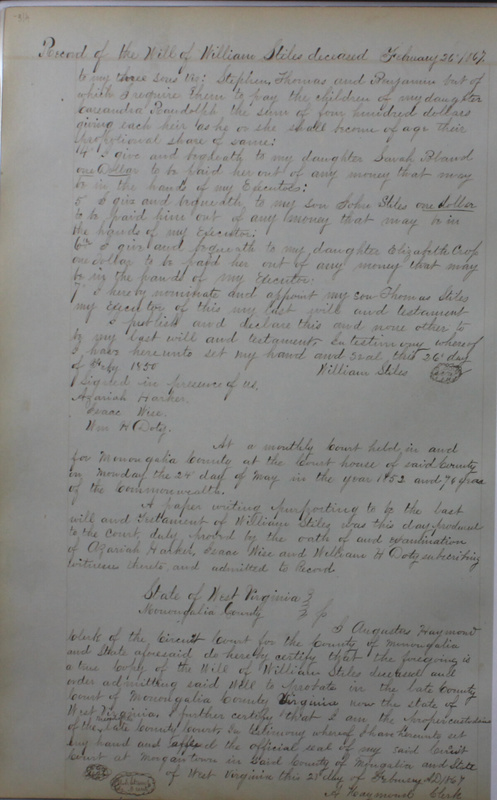 Record of the Will of William Stiles deceased February 26th 1867
to my three sons viz: Stephen, Thomas and Benjamin out of
which I require them to pay the children of my daughter
Cassandra Randolph the sum of four hundred dollars
giving each heir as he or she shall become of age their
proportional share of same:
4th I give and bequeath to my daughter Sarah
one Dollar to be paid her out of any money that may
be in the hands of my Executors:
5 I give and bequeath to my son John Stiles one dollar
to be paid him out of any money that may be in
the hands of my Executor:
6th I give and bequeath to my daughter Elizabeth Crop
one dollar to be paid her out of any money that may
be in the hands of my Executor:
7 I hereby nominate and appoint my son Thomas Stiles
my Executor of this my last will and testament
I publish and declare this and none other to
be my last will and testament. In testimony whereof
I have hereunto set my hand and seal this 26th day
of 1850
William Stiles
Signed in presence of us.
Azariah Harker.
Isaac Wise.
Wm H Doty.
At a monthly Court held in and
for Monongalia County at the Court house of said County
on Monday the 24th day of May in the year 1852 and 76 year
of the Commonwealth.
A paper writing purporting to be the last
will and Testament of William Stiles was this day produced
to the court duly proved by the oath of and examination
of Azariah Harker, Isaac Wise and William H Doty subscribing
witnesses thereto and admitted to Record
State of West Virginia
Monongalia County
I Augustus Haymond
Clerk of the Circuit Court for the County of Monongalia
and State aforesaid do hereby certify that the foregoing is
a true Copy of the Will of William Stiles deceased and
order admitting said Will to probate in the late County
Court of Monongalia County Virginia now the State of
West Virginia. I further certify that I am the proper custodian
of the late County Courts. In testimony whereof I have hereunto set
my hand and affixed the official seal of my said Circuit
Court at Morgantown in said County of Mongalia and State
of West Virginia this 25 day of February AD 1867
A Haymond Clerk